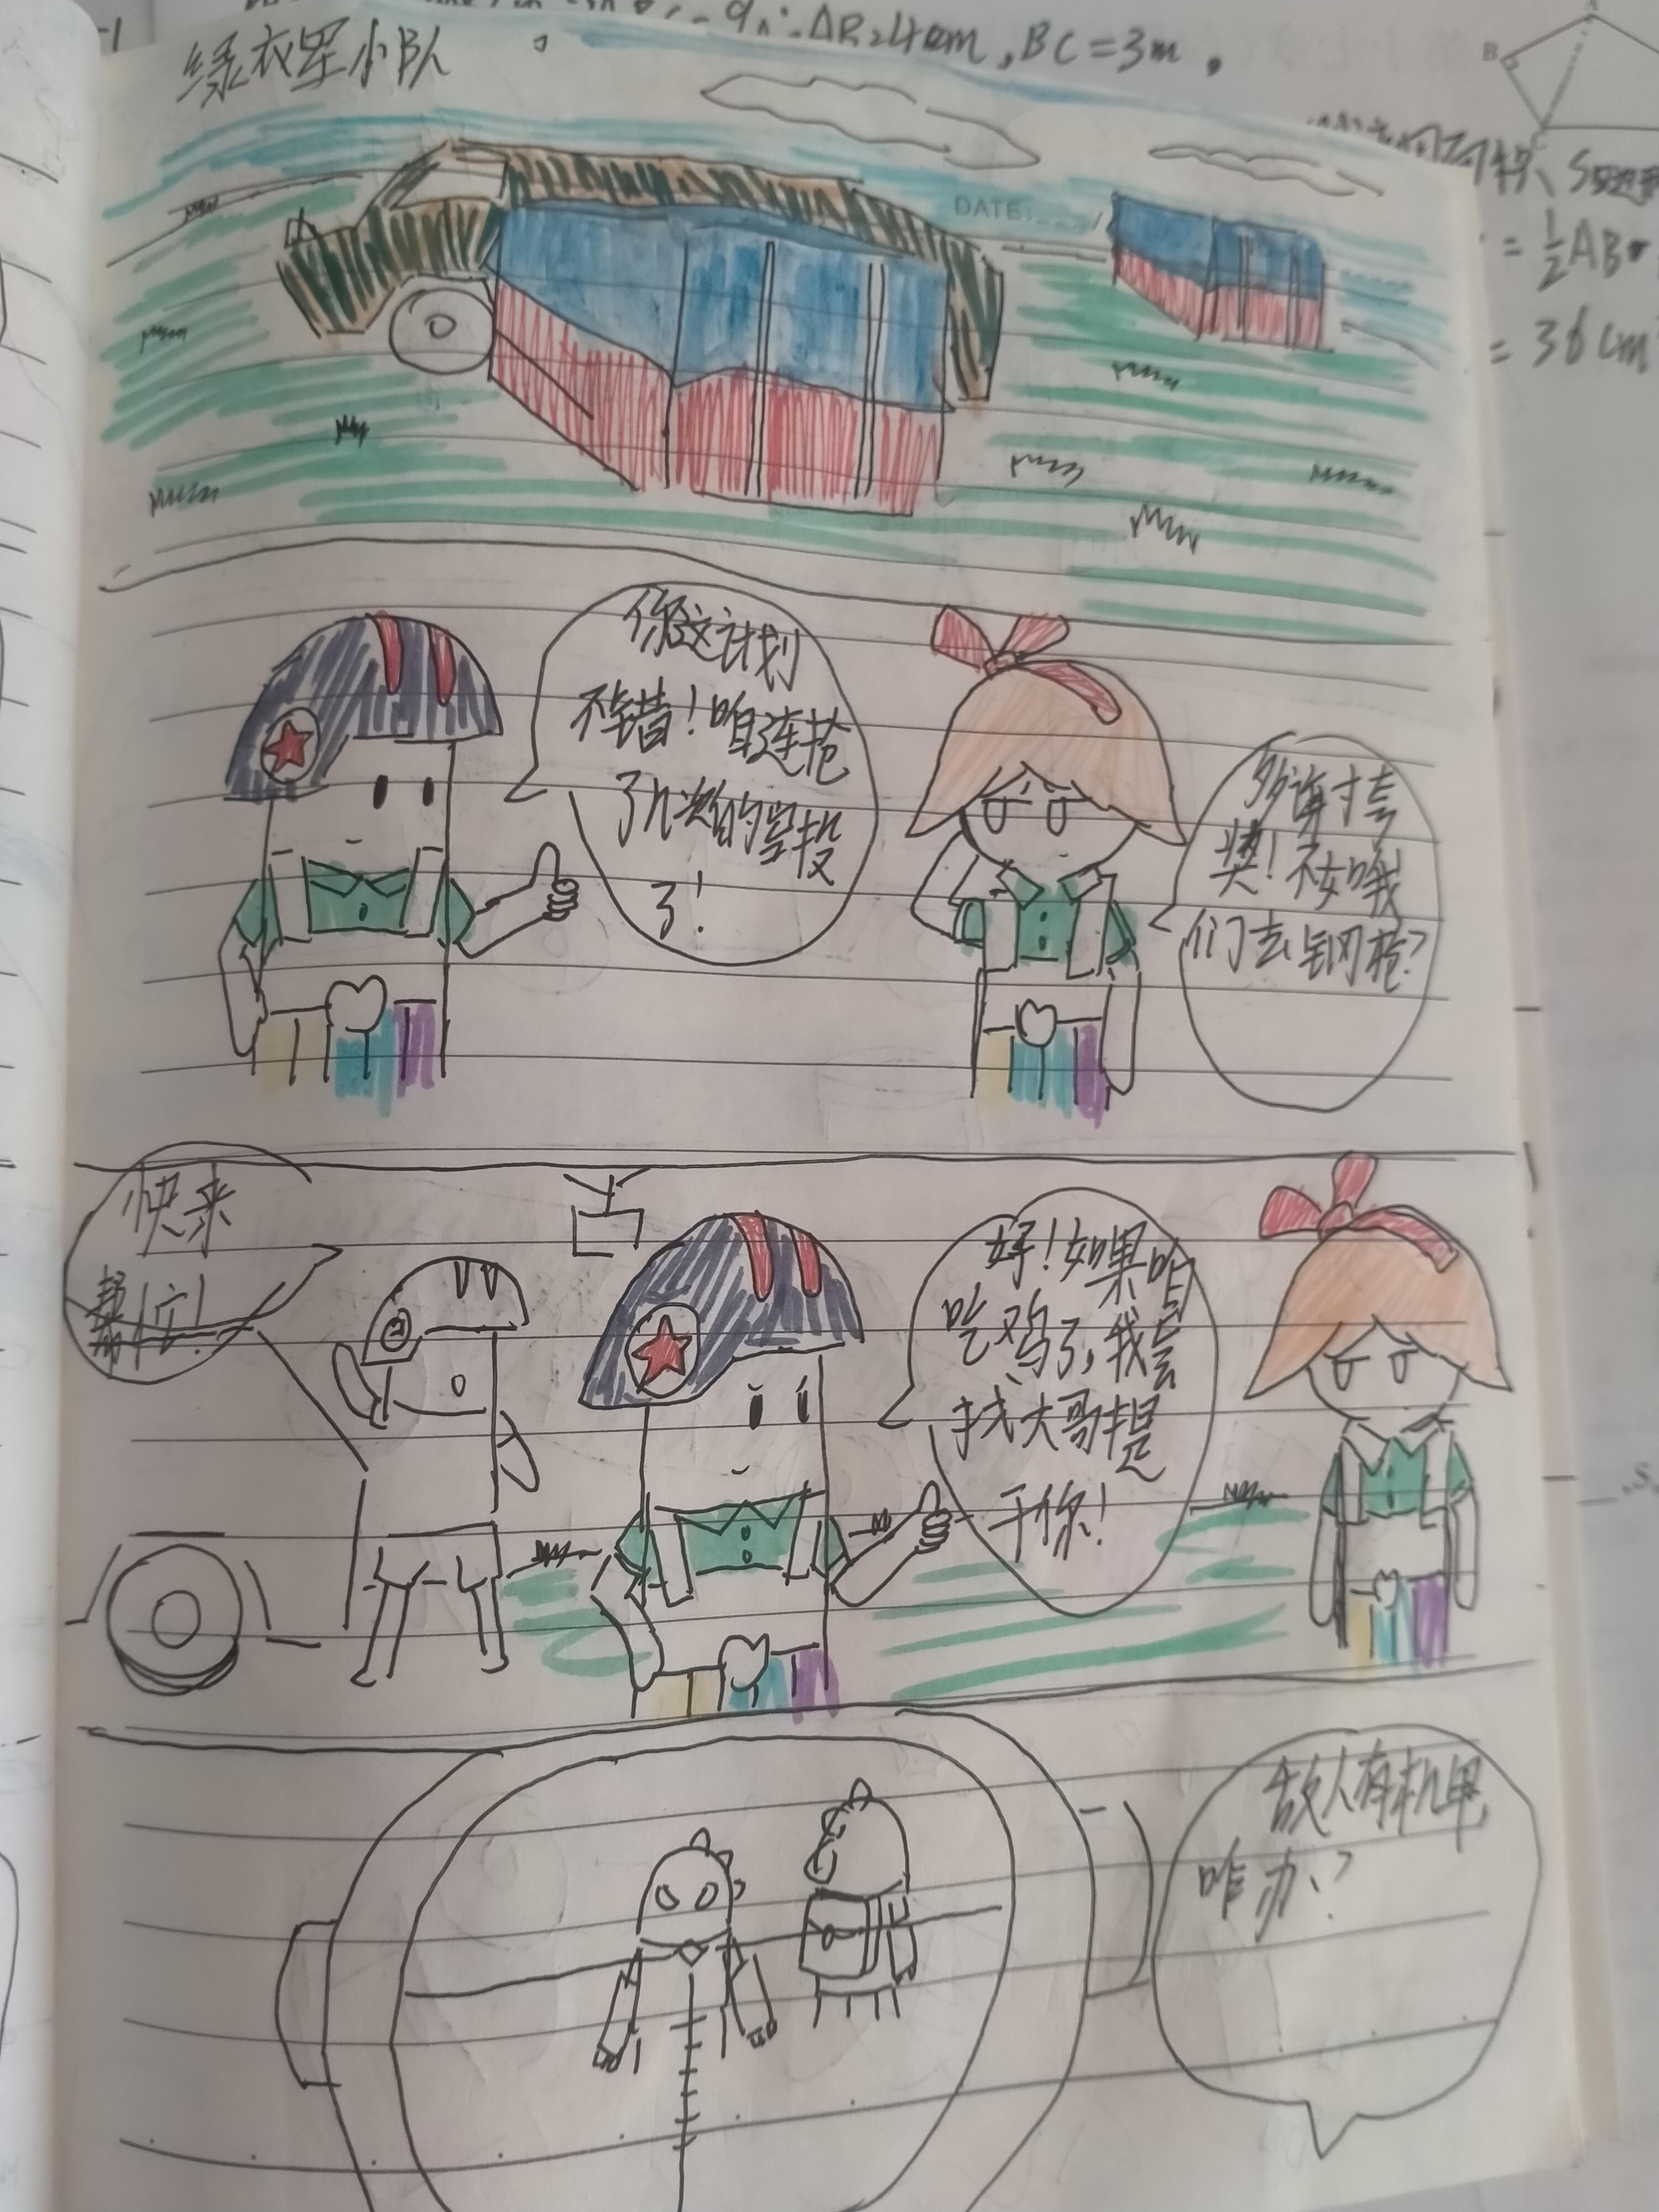 AB=4cm,BC=3m。
绿衣军小队
DATE:
B
= ½AB·
= 36cm
你这计划
不错！咱连抢
了几次的空投
了！
多谢夸
奖！不如我
们去钢枪？
快来
帮忙！
好！如果咱
吃鸡了,我会
找大哥提
干你！
敌人有机甲
咋办？